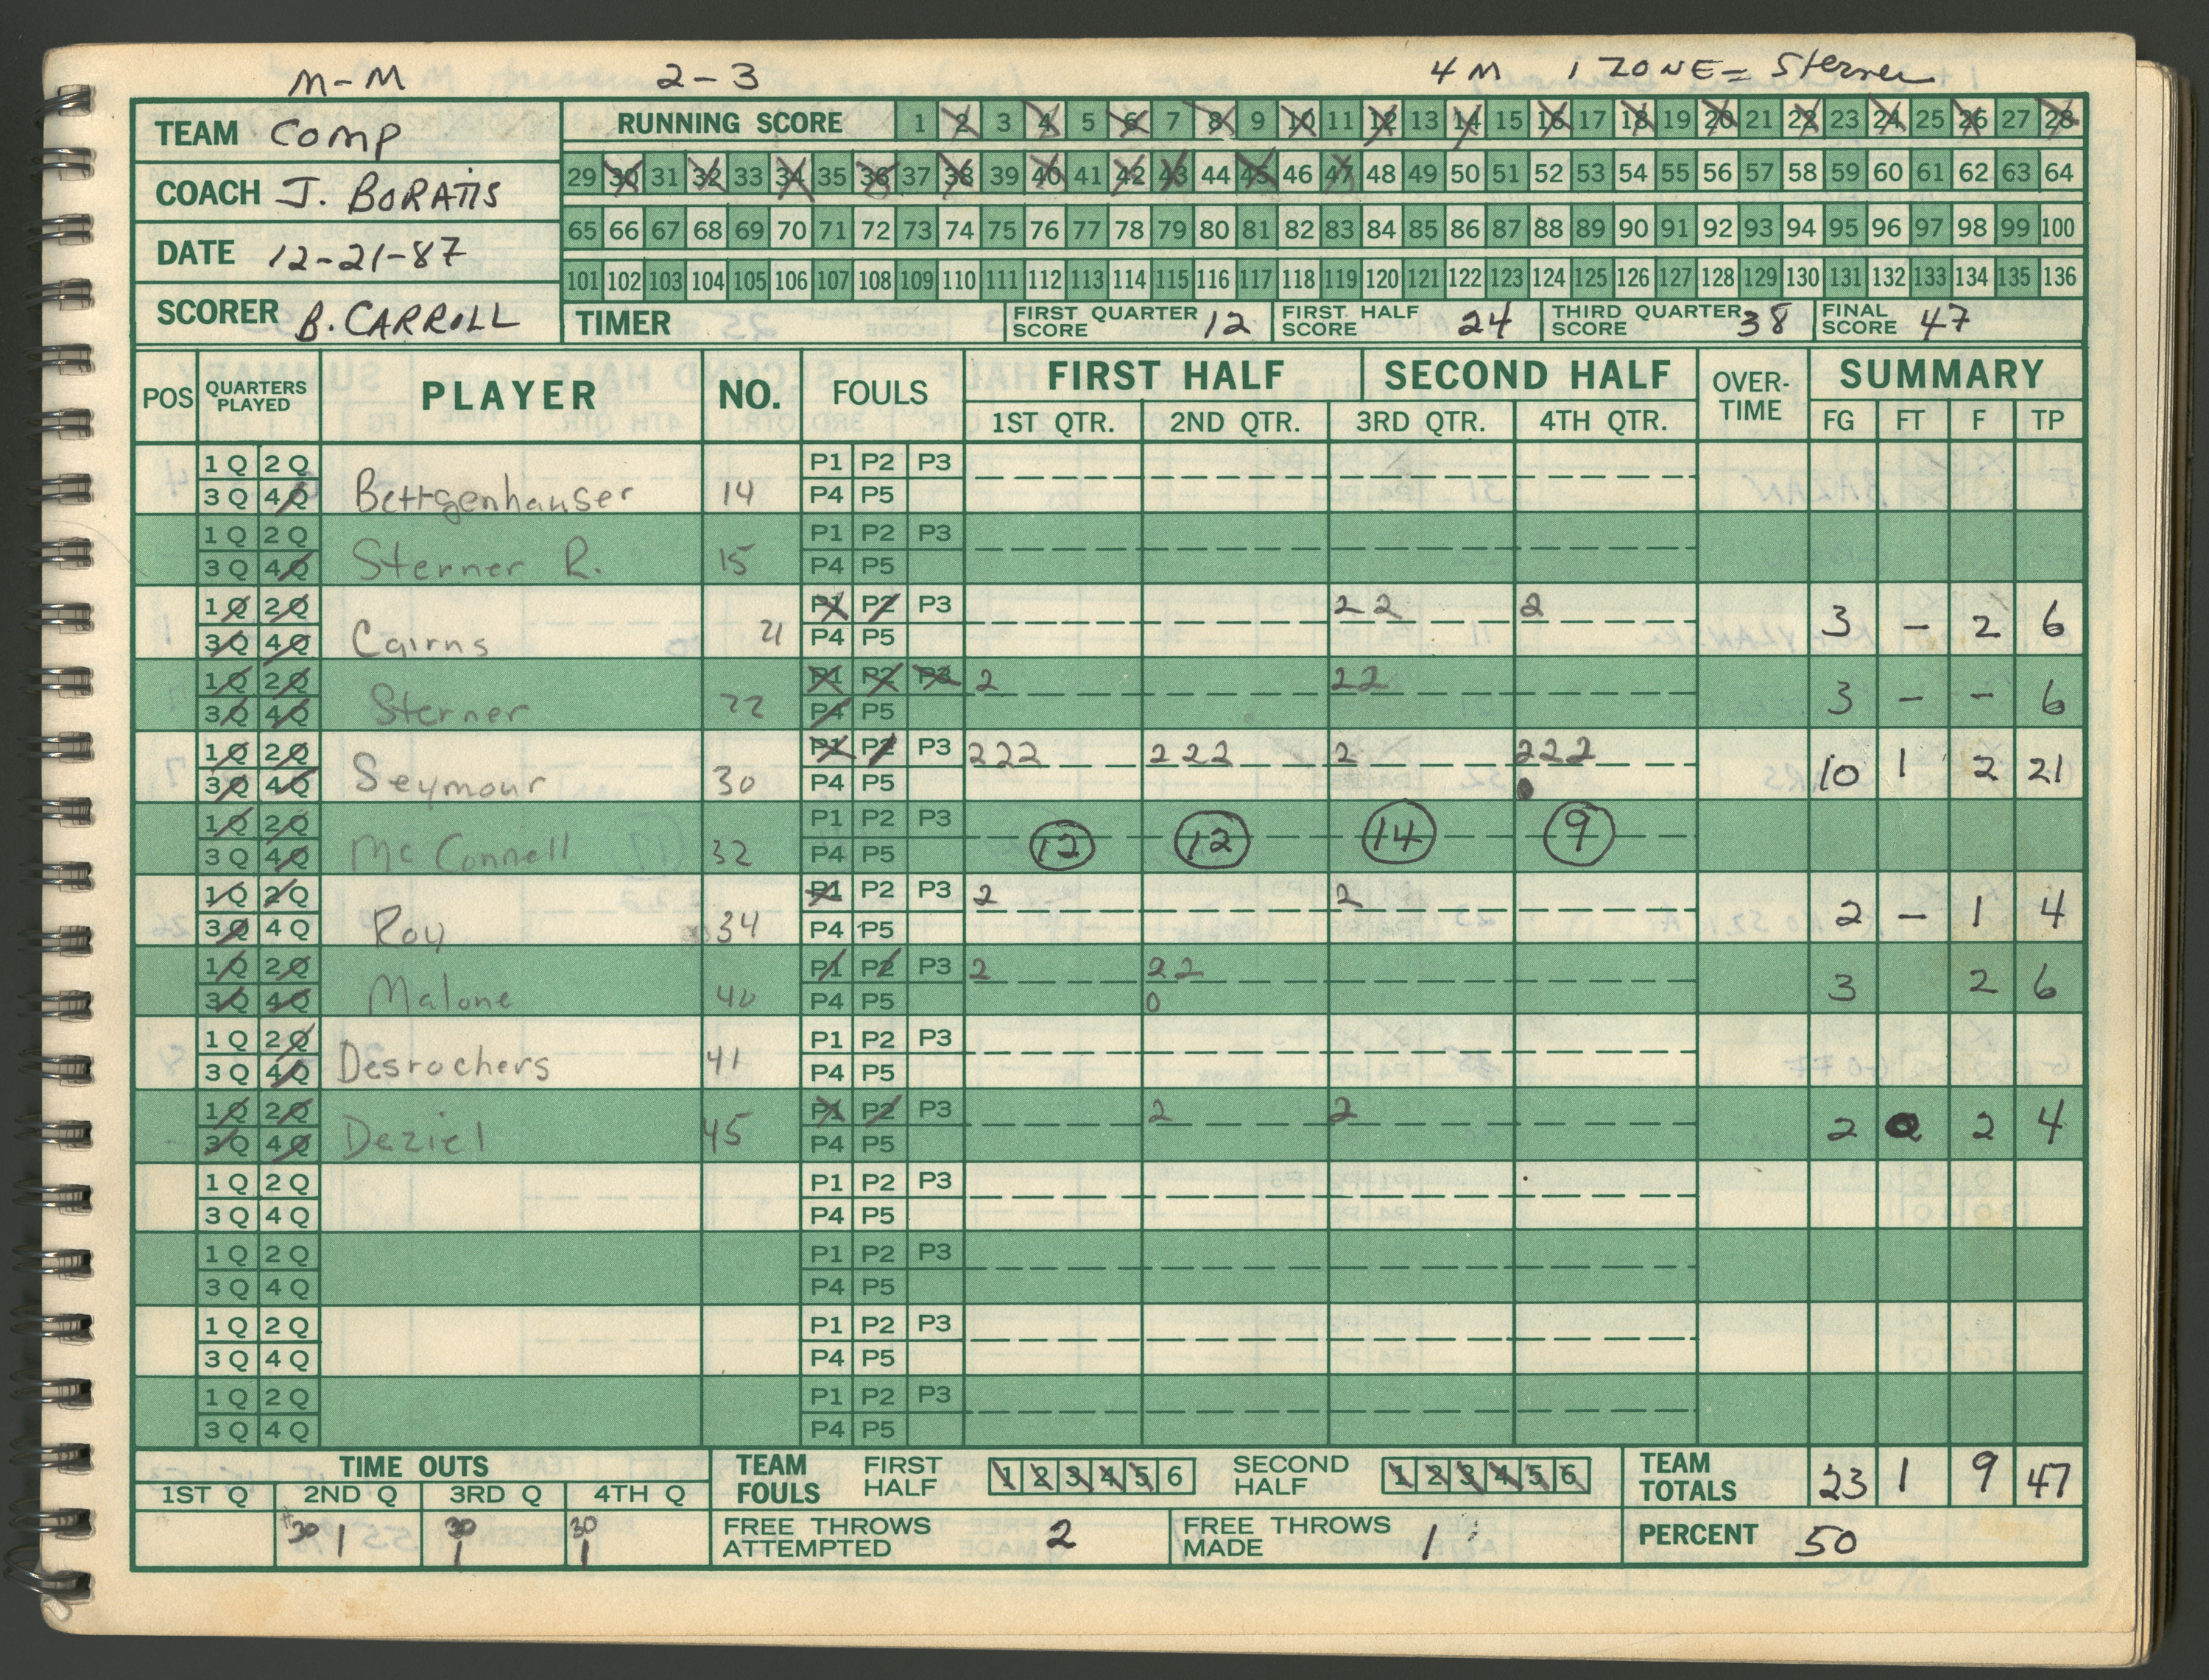 M-M 2-3 4 M 1 ZONE = Sterner
TEAM Comp
COACH J. BORATIS
DATE 12-21-87
SCORER B. CARROLL
RUNNING SCORE 1 2 3 4 5 6 7 8 9 10 11 12 13 14 15 16 17 18 19 20 21 22 23 24 25 26 27 28
29 30 31 32 33 34 35 36 37 38 39 40 41 42 43 44 45 46 47 48 49 50 51 52 53 54 55 56 57 58 59 60 61 62 63 64
65 66 67 68 69 70 71 72 73 74 75 76 77 78 79 80 81 82 83 84 85 86 87 88 89 90 91 92 93 94 95 96 97 98 99 100
101 102 103 104 105 106 107 108 109 110 111 112 113 114 115 116 117 118 119 120 121 122 123 124 125 126 127 128 129 130 131 132 133 134 135 136
TIMER FIRST QUARTER SCORE 12 FIRST HALF SCORE 24 THIRD QUARTER SCORE 38 FINAL SCORE 47
POS QUARTERS PLAYED PLAYER NO. FOULS FIRST HALF SECOND HALF OVER-TIME SUMMARY
1ST QTR. 2ND QTR. 3RD QTR. 4TH QTR. FG FT F TP
1 Q 2 Q P1 P2 P3
3 Q 4 Q Bettgenhauser 14 P4 P5
1 Q 2 Q P1 P2 P3
3 Q 4 Q Sterner R. 15 P4 P5
1 Q 2 Q P1 P2 P3 2 2 2
3 Q 4 Q Cairns 21 P4 P5 3 - 2 6
1 Q 2 Q P1 P2 P3 2 2 2
3 Q 4 Q Sterner 22 P4 P5 3 - - 6
1 Q 2 Q P1 P2 P3 2 2 2 2 2 2 2 2 2 2
3 Q 4 Q Seymour 30 P4 P5 10 1 2 21
1 Q 2 Q P1 P2 P3
3 Q 4 Q Mc Connell 32 P4 P5 12 12 14 9
1 Q 2 Q P1 P2 P3 2 2
3 Q 4 Q Roy 34 P4 P5 2 - 1 4
1 Q 2 Q P1 P2 P3 2 2 2
3 Q 4 Q Malone 40 P4 P5 0 3 2 6
1 Q 2 Q P1 P2 P3
3 Q 4 Q Desrochers 41 P4 P5
1 Q 2 Q P1 P2 P3 2 2
3 Q 4 Q Deziel 45 P4 P5 2 0 2 4
1 Q 2 Q P1 P2 P3
3 Q 4 Q P4 P5
1 Q 2 Q P1 P2 P3
3 Q 4 Q P4 P5
1 Q 2 Q P1 P2 P3
3 Q 4 Q P4 P5
1 Q 2 Q P1 P2 P3
3 Q 4 Q P4 P5
TIME OUTS
1ST Q 2ND Q 3RD Q 4TH Q
30 1 30 1 30 1
TEAM FOULS FIRST HALF 1 2 3 4 5 6 SECOND HALF 1 2 3 4 5 6
FREE THROWS ATTEMPTED 2 FREE THROWS MADE 1
TEAM TOTALS 23 1 9 47
PERCENT 50